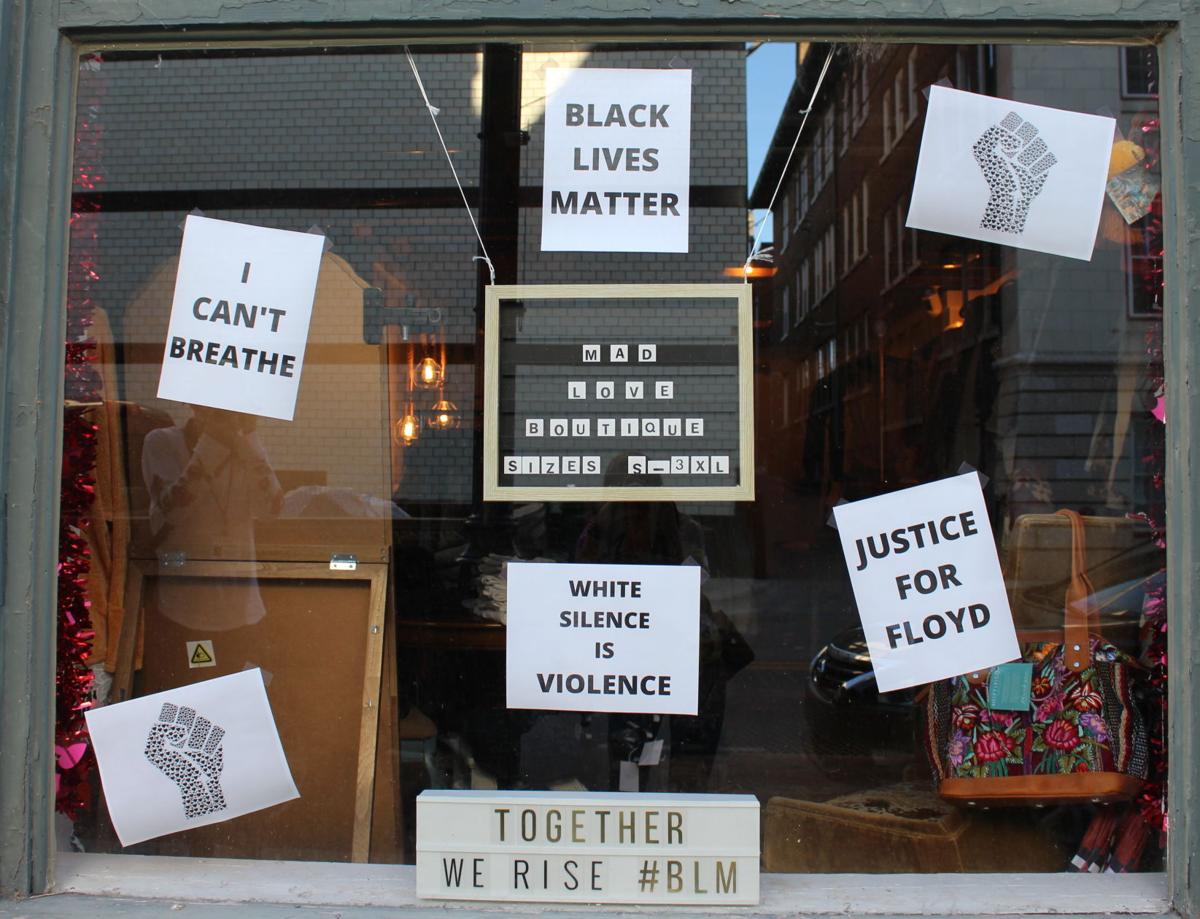 BLACK
LIVES
MATTER
I
CAN'T
BREATHE
MAD
LOVE
BOUTIQUE
SIZES S-3XL
JUSTICE
FOR
FLOYD
WHITE
SILENCE
IS
VIOLENCE
TOGETHER
WE RISE #BLM